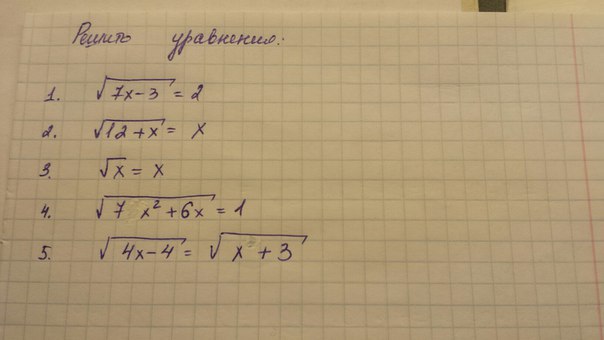 Решить уравнения:
1. √7x-3 = 2
2. √12+x = x
3. √x = x
4. √7 x² + 6x = 1
5. √4x-4 = √x + 3